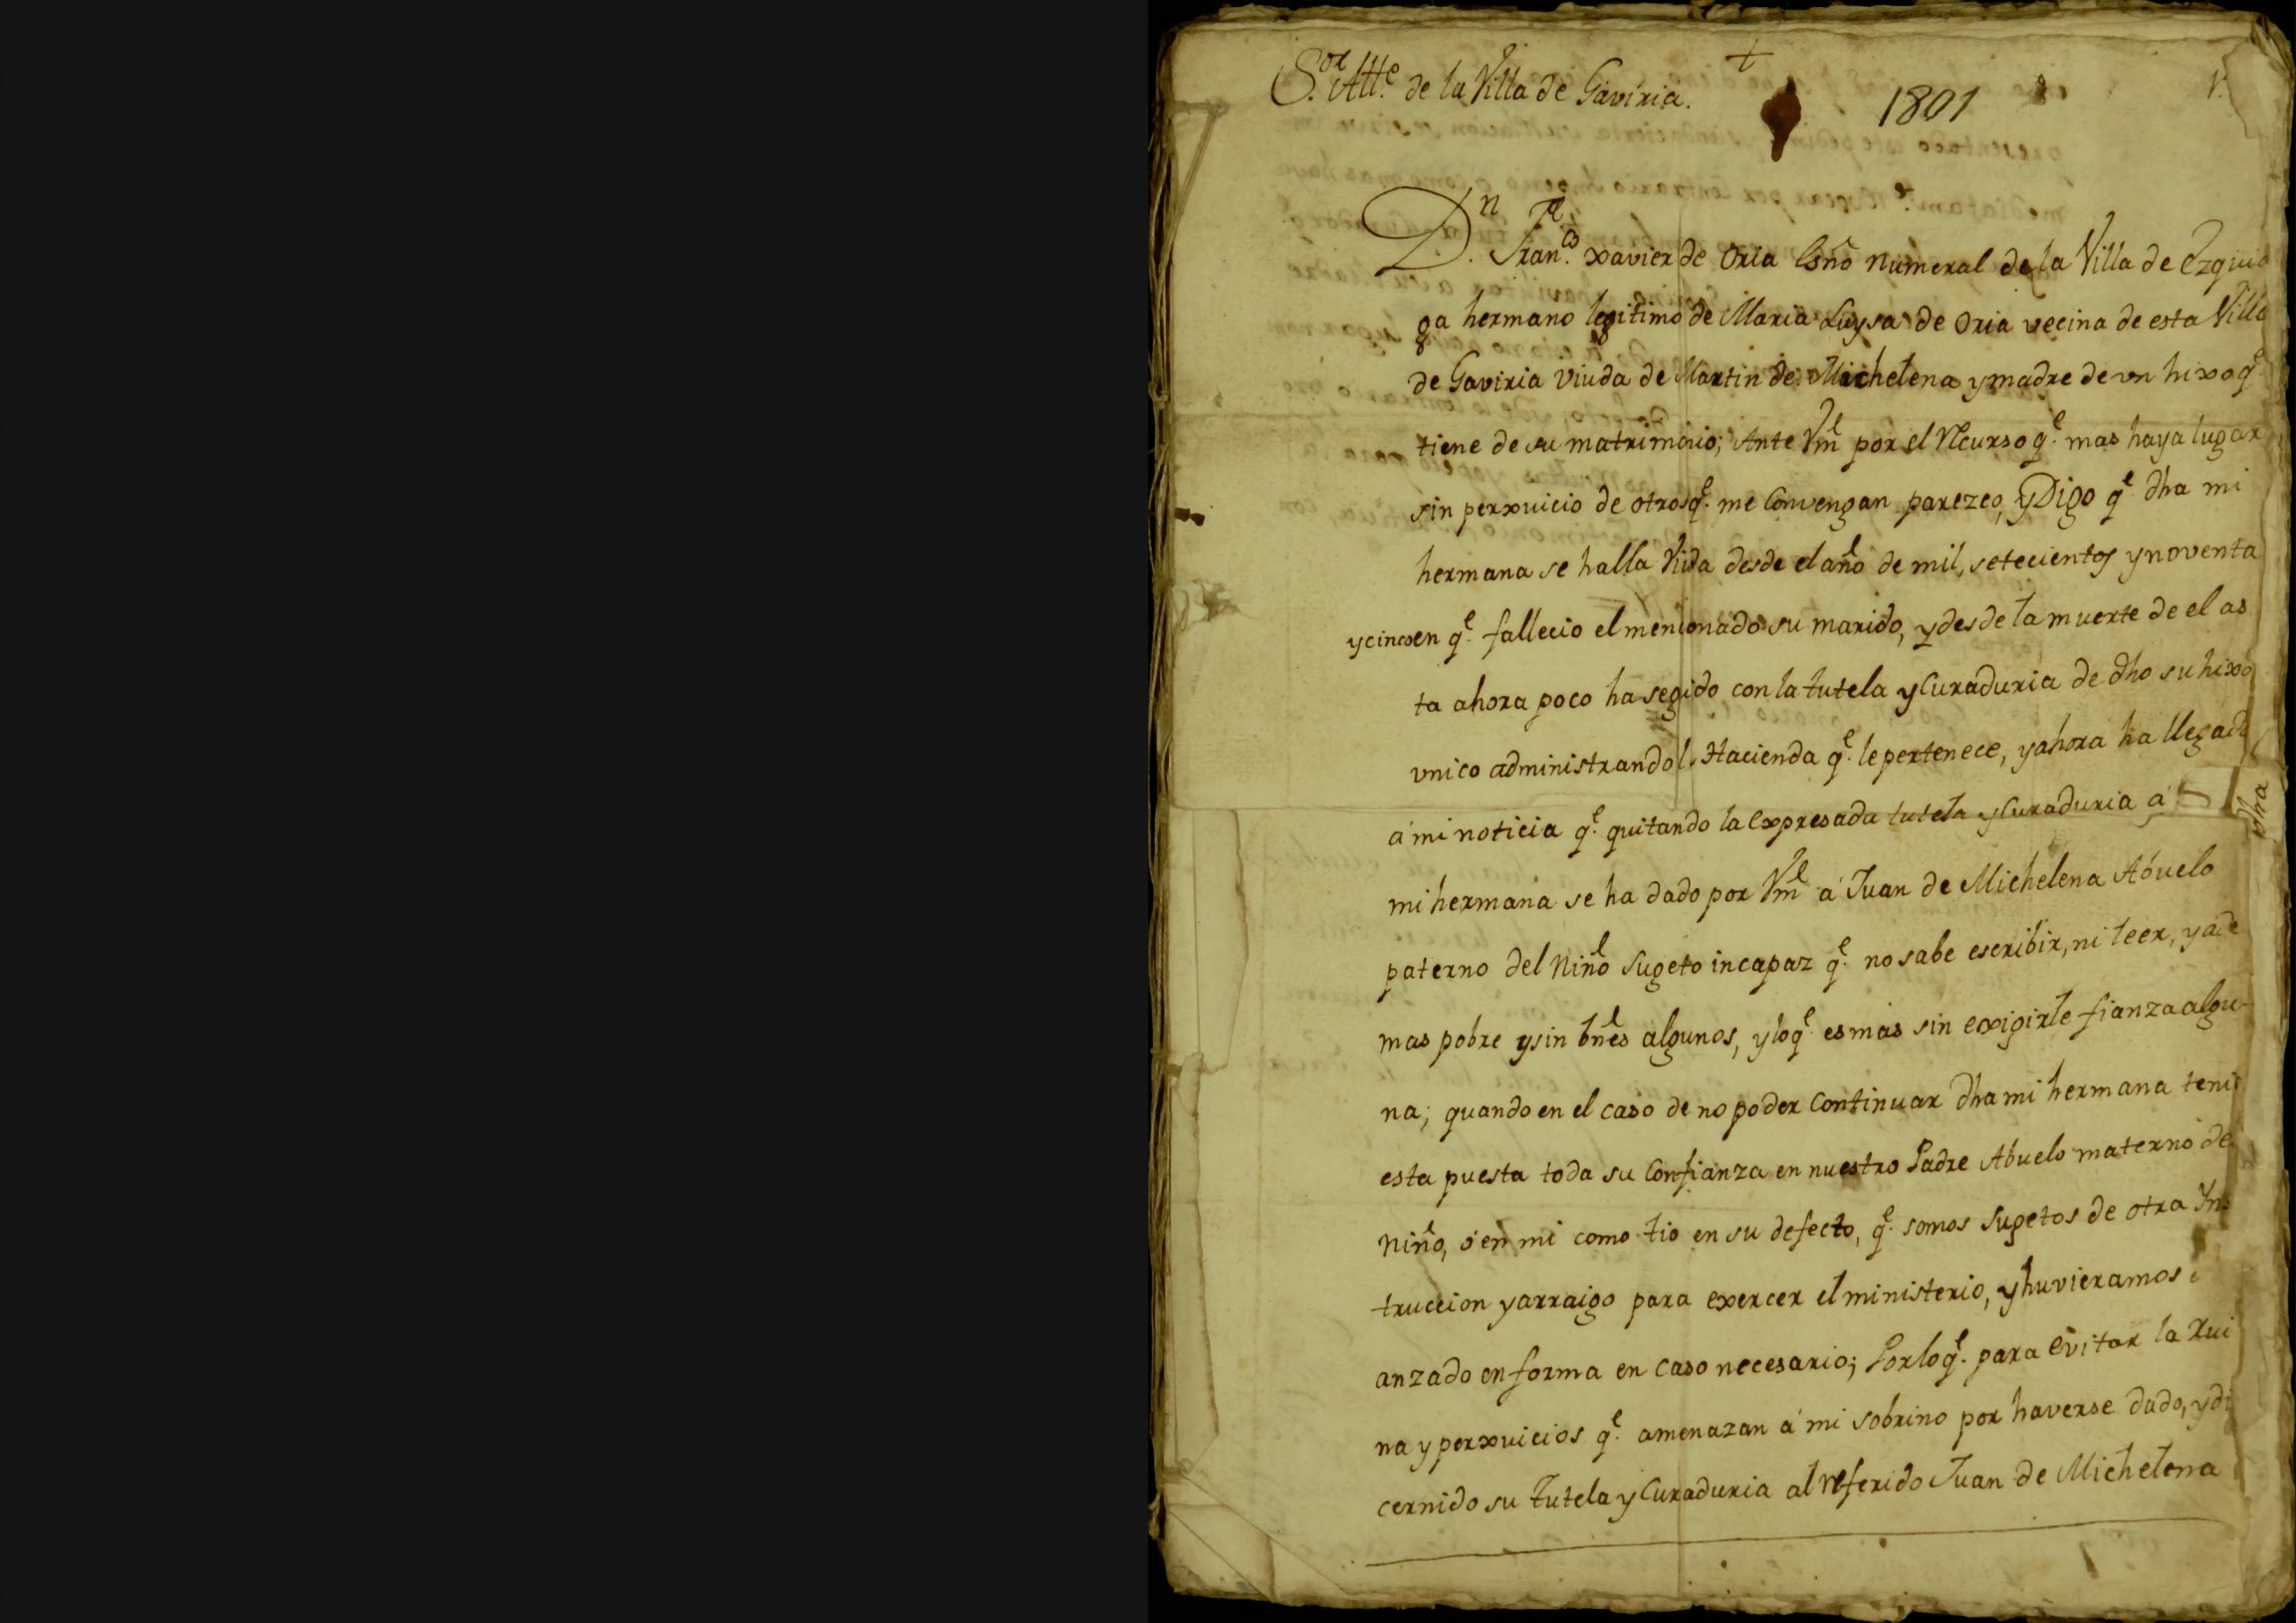 +
S.or Allc.e de la Villa de Gaviria.
1801
D.n Fran.co xavier de Oria Esno Numeral de la Villa de Ezquio
ga hermano legitimo de Maria Luysa de Oria vecina de esta Villa
de Gaviria Viuda de Martin de Michelena y madre de vn hixo q.e
tiene de su matrimonio; Ante Vm por el Recurso q.e mas haya lugar
sin perxuicio de otros q.e me Convengan parezco, y Digo q.e dha mi
hermana se halla Viuda desde el año de mil, setecientos y noventa
y cinco en q.e fallecio el mencionado su marido, y desde la muerte de el as
ta ahora poco ha segido con la tutela y Curaduria de dho su hixo
vnico administrando la Hacienda q.e le pertenece, y ahora ha llegado
á mi noticia q.e quitando la expresada tutela y Curaduria á dha
mi hermana se ha dado por Vm á Juan de Michelena Abuelo
paterno del Niño Sugeto incapaz q.e no sabe escribir, ni leer, y ade
mas pobre y sin bnes algunos, y lo q.e es mas sin exigirle fianza algu-
na; quando en el caso de no poder Continuar dha mi hermana tenia
esta puesta toda su Confianza en nuestro Padre Abuelo materno del
Niño, ó en mi como tio en su defecto, q.e somos Sugetos de otra Yns
truccion y arraigo para exercer el ministerio, y huvieramos
anzado en forma en caso necesario; Por lo q.e para evitar la Rui
na y perxuicios q.e amenazan á mi sobrino por haverse dado, y dis
cernido su Tutela y Curaduria al referido Juan de Michelena